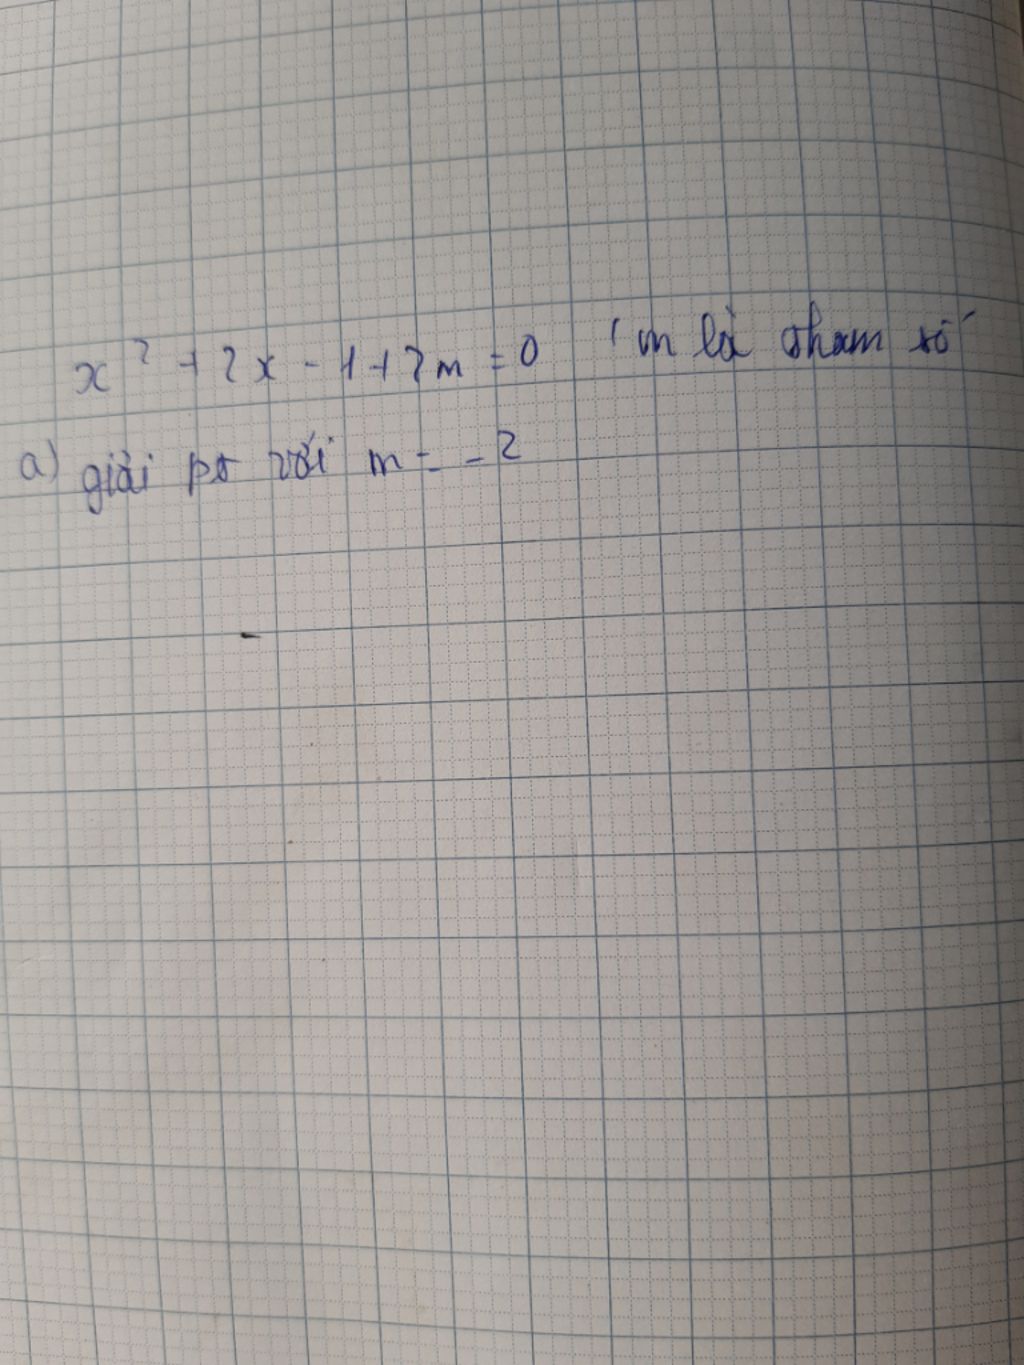 x² + 2x - 1 + 2m = 0 (m là tham số
a) giải pt với m = -2